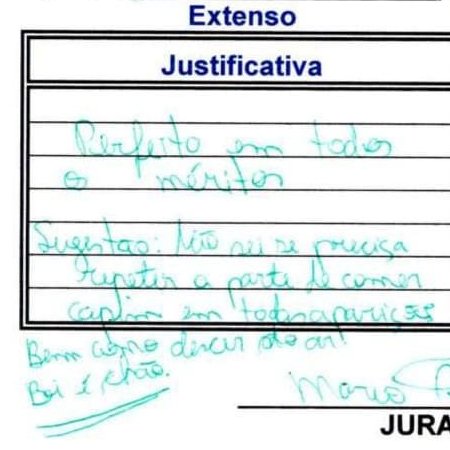 Extenso
Justificativa
Perfeito em todos
os méritos
Sugestão: Não sei se precisa
repetir a parte de comer
capim em todas aparições
Bem como descer do av!
Boi é chão.
Mario
JURA